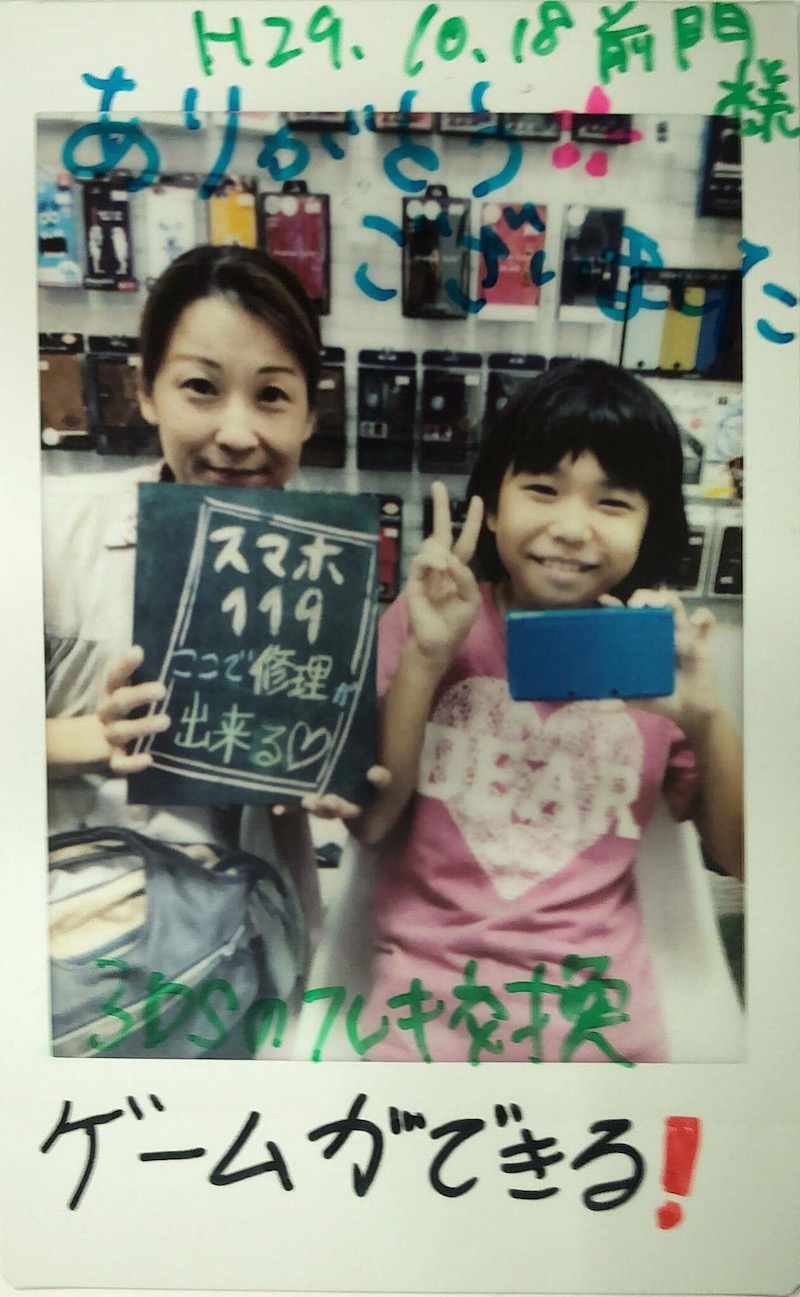 H29. 10. 18 前門様
ありがとう
ございました
スマホ
119
ここで修理が
出来る♡
DEAR
3DSのフレキ交換
ゲームができる!